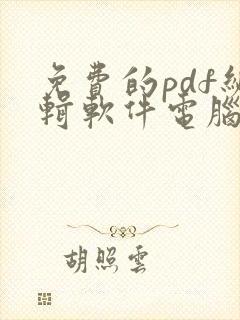 免費的pdf編
輯軟件電腦
胡照雲